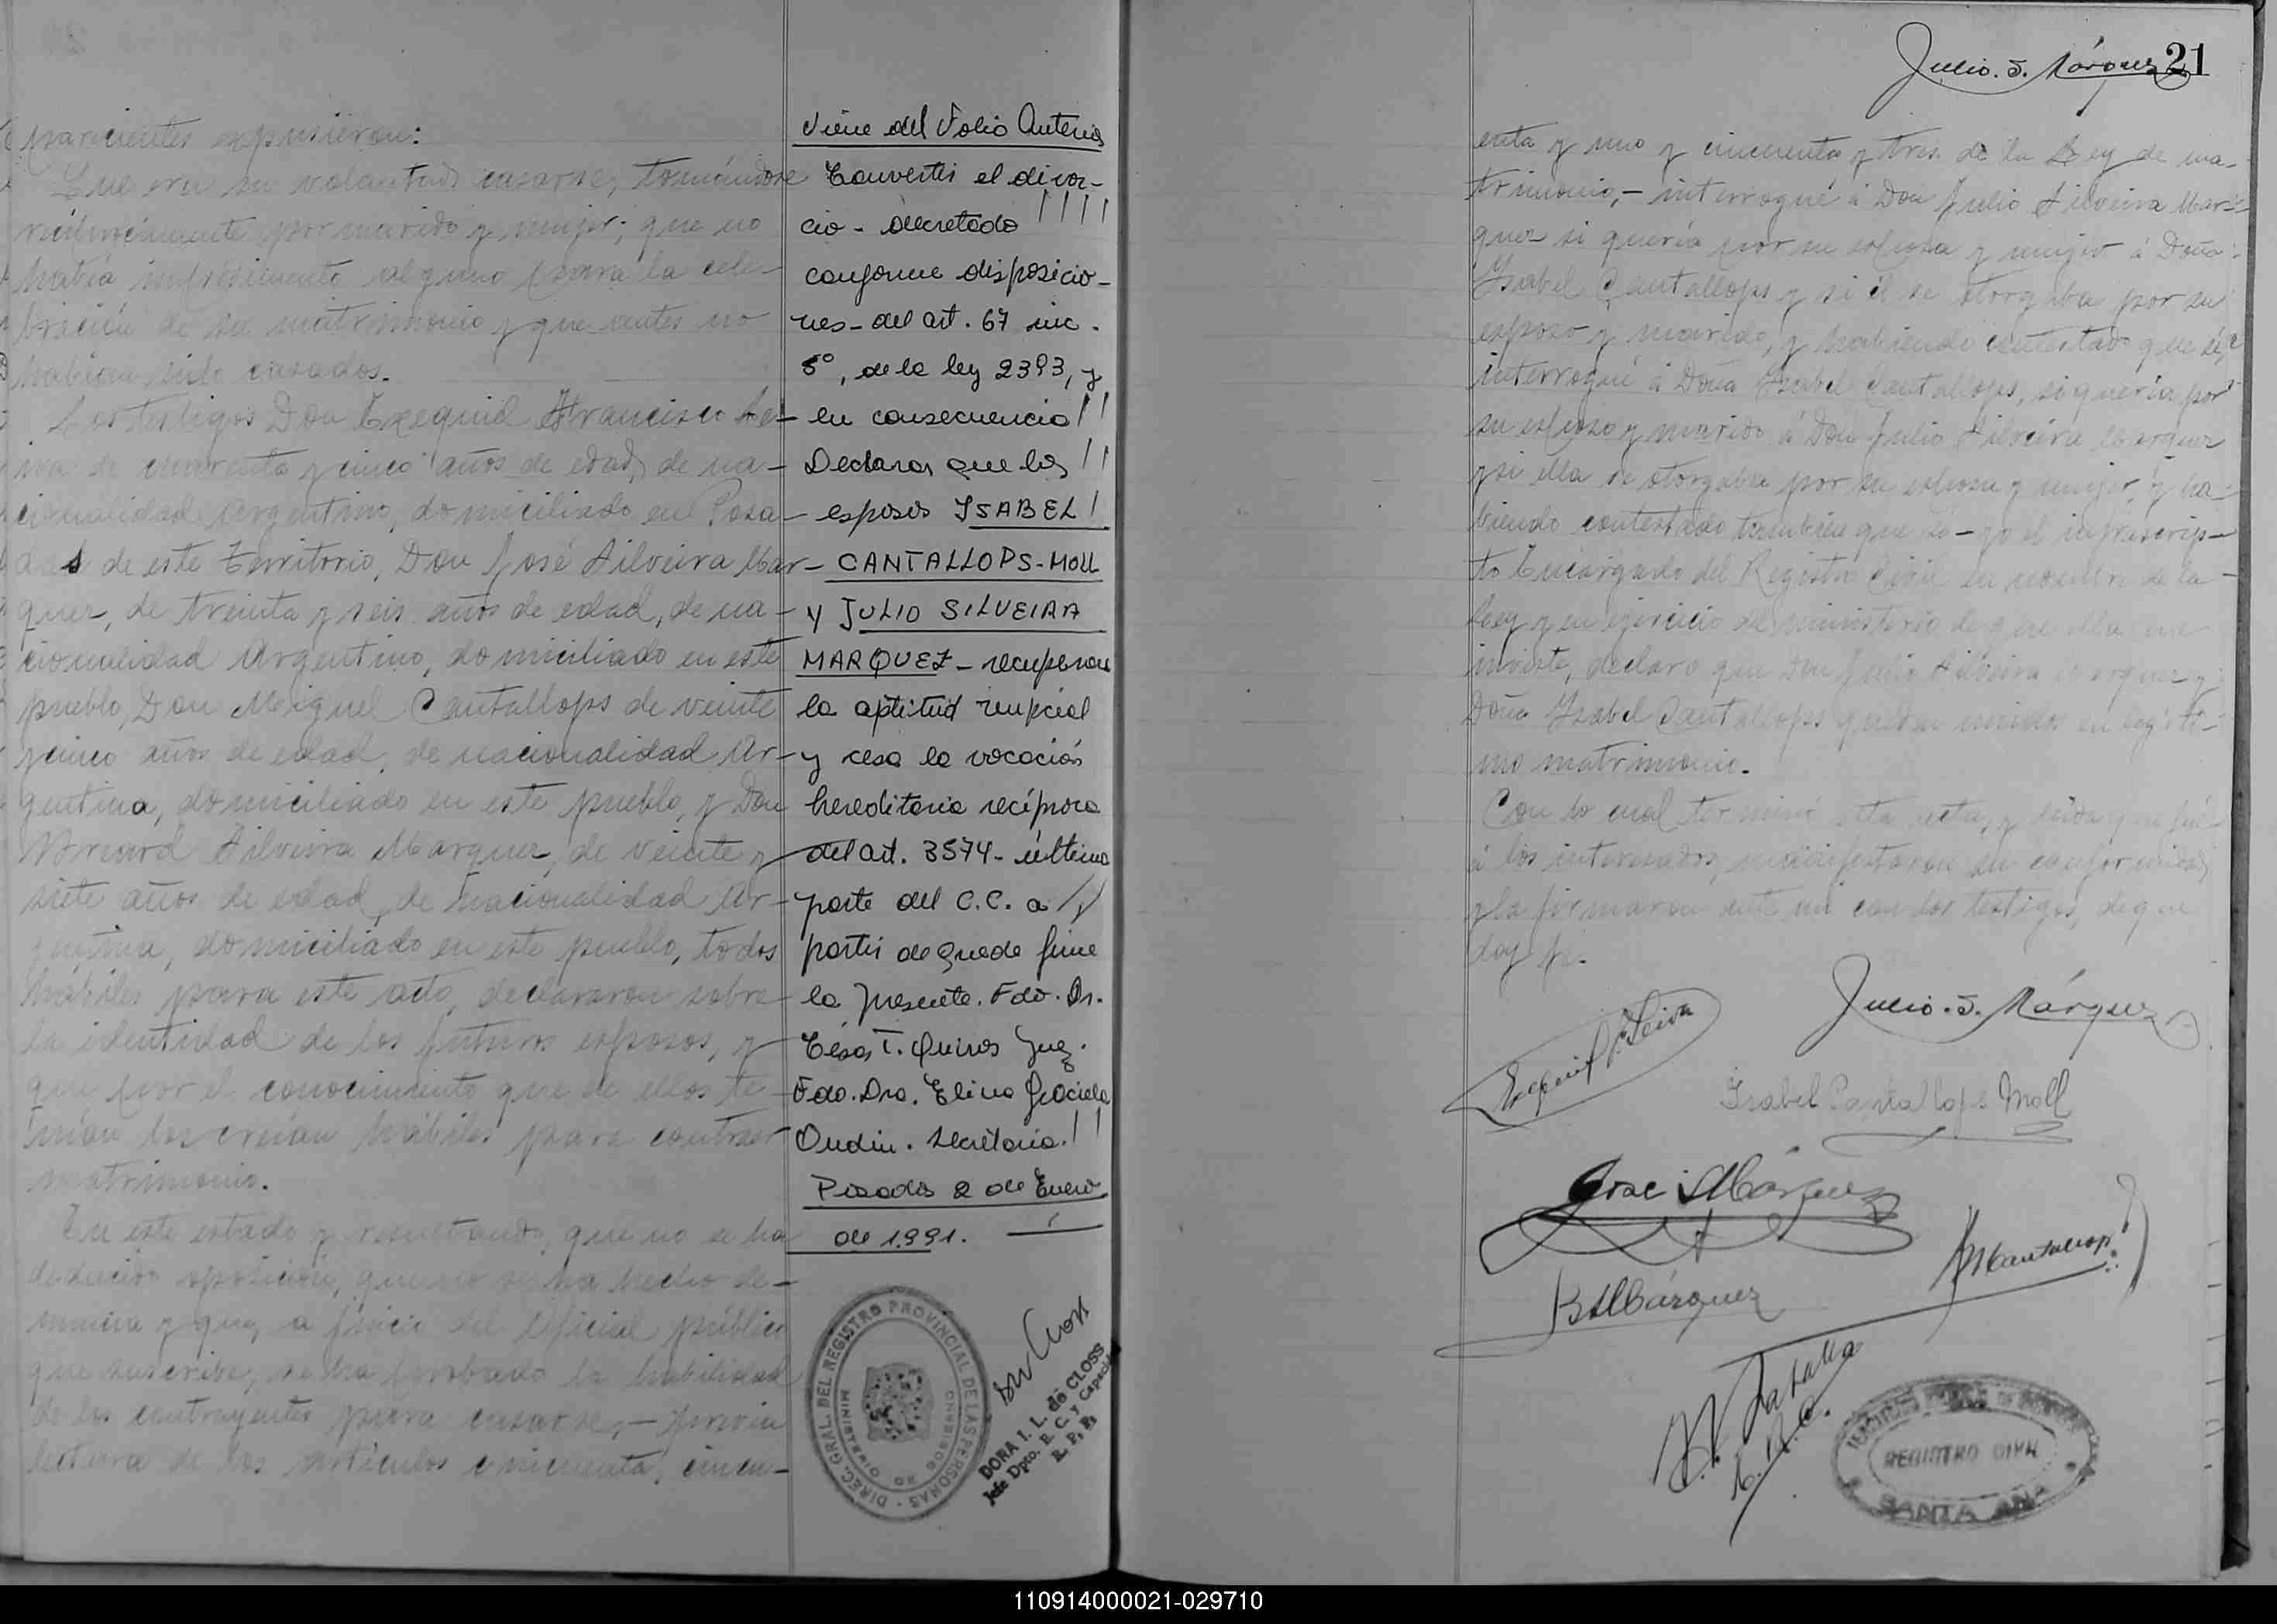 parecientes expusieron:
Que era su voluntad casarse, tomándose
recíprocamente por marido y mujer; que no
había impedimento alguno para la cele-
bración de su matrimonio y que antes no
habían sido casados.
Los testigos Don Exequiel Francisco Lei-
va de cuarenta y cinco años de edad, de na-
cionalidad Argentino, domiciliado en Posa-
das de este Territorio, Don José Silveira Mar-
quez, de treinta y seis años de edad, de na-
cionalidad Argentino, domiciliado en este
pueblo, Don Miguel Cantallops de veinte
y cinco años de edad, de nacionalidad Ar-
gentina, domiciliado en este pueblo, y Don
Silveira Marquez, de veinte y
siete años de edad, de nacionalidad Ar-
gentina, domiciliado en este pueblo, todos
hábiles para este acto, declararon sobre
la identidad de los futuros esposos, y
que por el conocimiento que de ellos te-
nían los creían hábiles para contraer
matrimonio.
En este estado y resultando, que no se ha
deducido oposición, que no se ha hecho de-
nuncia y que, a juicio del Oficial público
que suscribe, se ha probado la habilidad
de los contrayentes para casarse,- previa
lectura de los artículos cincuenta, cincu-
Viene del Folio Anterior
Convertir el divor-
cio - decretado
conforme disposicio-
nes - del art. 67 inc.
5º, de la ley 2393, y
en consecuencia
Declarar que los
esposos ISABEL
CANTALLOPS-MOLL
Y JULIO SILVEIRA
MARQUEZ - recuperan
la aptitud nupcial
y cesa la vocación
hereditaria recíproca
del art. 3574 - última
parte del C.C. a
partir de quede firme
la presente. Fdo. Dr.
César T. Quiros Juez.
Fdo. Dra. Elina Graciela
Ondin. Secretaria.
Posadas 2 de Enero
de 1.991.
DIREC. GRAL. DEL REGISTRO PROVINCIAL DE LAS PERSONAS
MINISTERIO DE GOBIERNO
DORA I. L. de CLOSS
Jefe Dpto. E. C. y Capacidad
R. P. P.
Julio. S. Márquez 21
enta y uno y cincuenta y tres de la Ley de ma-
trimonio,- interrogué á Don Julio Silveira Mar-
quez si quería por su esposa y mujer á Doña
Ysabel Cantallops y si él se otorgaba por su
esposo y marido, y habiendo contestado que sí,
interrogué á Doña Ysabel Cantallops, si quería por
su esposo y marido á Don Julio Silveira Marquez
y si ella se otorgaba por su esposa y mujer, y ha-
biendo contestado también que sí - yo el infrascrip-
to Encargado del Registro Civil en nombre de la
Ley y en ejercicio del ministerio de que ella me
inviste, declaro que Don Julio Silveira Marquez y
Doña Ysabel Cantallops quedan unidos en legíti-
mo matrimonio.
Con lo cual terminó esta acta, y leída que fué
á los interesados, manifestaron su conformidad,
y la firmaron ante mi con los testigos, de que
doy fe.
Julio. S. Márquez
Exequiel F. Leiva
Isabel Cantallops Moll
José S Márquez
M Cantallops
B S Márquez
E. R. C.
REGISTRO CIVIL
SANTA ANA
110914000021-029710